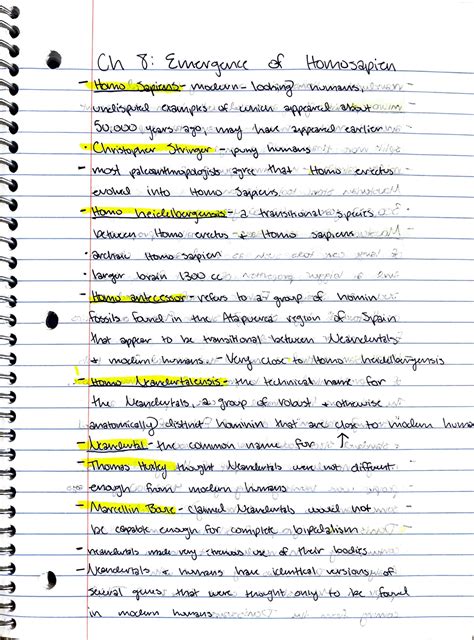 Ch 8: Emergence of Homosapien
- Homo Sapiens - modern-looking humans,
undisputed examples of which appeared about
50,000 years ago, may have appeared earlier
• Christopher Stringer - puny humans
- most paleoanthropologists agree that Homo erectus
evolved into Homo Sapiens
- Homo heidelbergensis - a transitional species
between Homo erectus + Homo sapiens
- archaic Homo sapien
• larger brain 1300 cc
- Homo antecessor - refers to a group of hominin
fossils found in the Atapuerca region of Spain
that appear to be transitional between Neandertals
+ modern humans - Very close to Homo heidelbergensis
- Homo Neandertalensis - the technical name for
the Neandertals, a group of robust + otherwise
anatomically distinct hominin that are close to modern humans
- Neandertal - the common name for ↑
- Thomas Huxley thought Neandertals were not different
enough from modern humans
- Marcellin Boule - claimed Neandertals would not
be capable enough for complete bipedalism
- neandertals made very strenuous use of their bodies
- Neandertals + humans have identical versions of
several genes that were thought only to be found
in modern humans